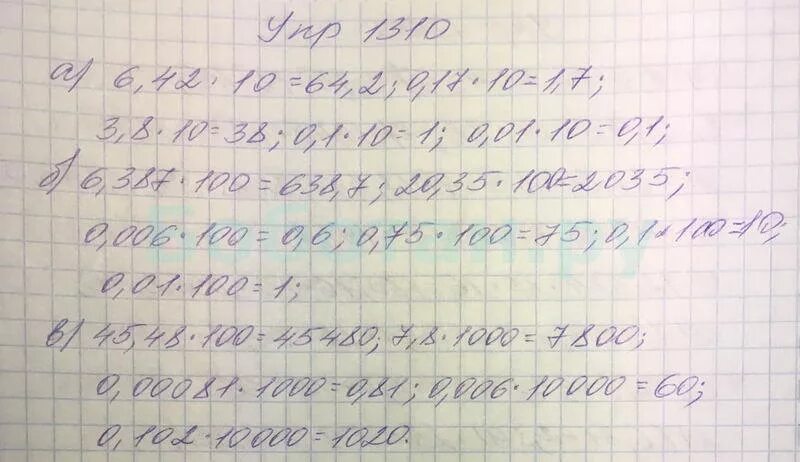 Упр 1310
а) 6,42 · 10 = 64,2; 0,17 · 10 = 1,7;
3,8 · 10 = 38; 0,1 · 10 = 1; 0,01 · 10 = 0,1;
б) 6,387 · 100 = 638,7; 20,35 · 100 = 2035;
0,006 · 100 = 0,6; 0,75 · 100 = 75; 0,1 · 100 = 10;
0,01 · 100 = 1;
в) 45,48 · 100 = 45480; 7,8 · 1000 = 7800;
0,00081 · 1000 = 0,81; 0,006 · 10000 = 60;
0,102 · 10000 = 1020.